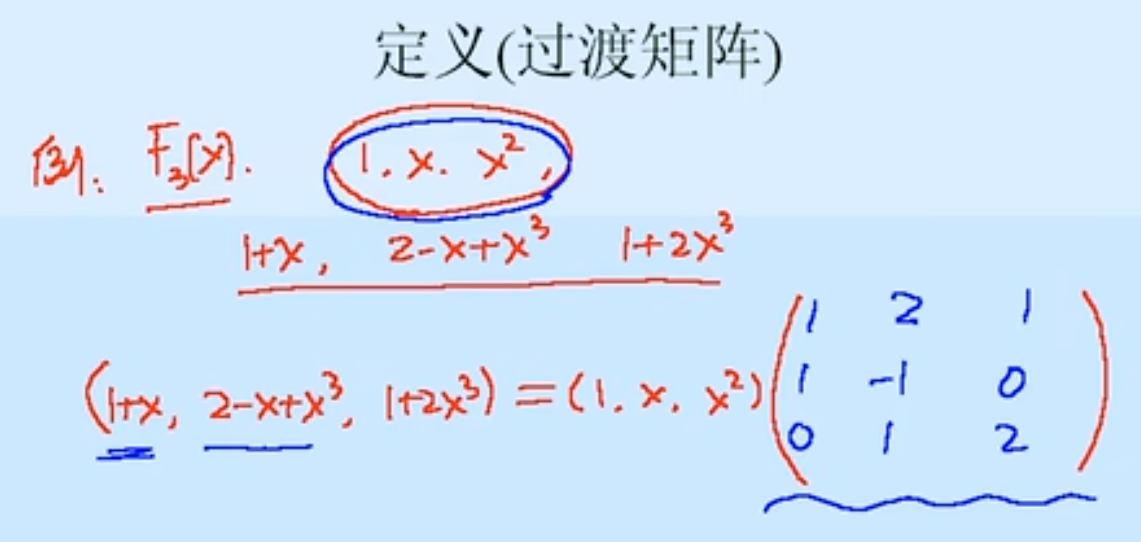 定义(过渡矩阵)
例. F₃[x]. 1. x. x²,
1+x, 2-x+x³ 1+2x³
(1+x, 2-x+x³, 1+2x³) = (1. x. x²) (1 2 1
1 -1 0
0 1 2)